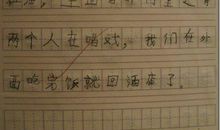 两个人在唱戏，我们在外
面吃完饭就回酒店了。